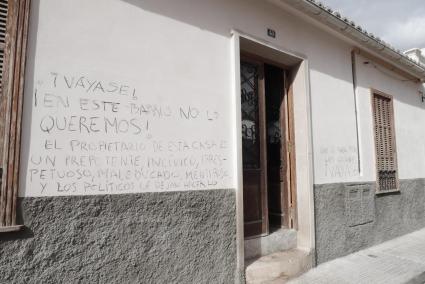 ¡VÁYASE!
¡EN ESTE BARRIO NO LO
QUEREMOS!
EL PROPIETARIO DE ESTA CASA ES
UN PREPOTENTE, INCÍVICO, IRRES-
PETUOSO, MALEDUCADO, MENTIROSO,
Y LOS POLÍTICOS LE DEJAN HACERLO
¡VÁYASE!